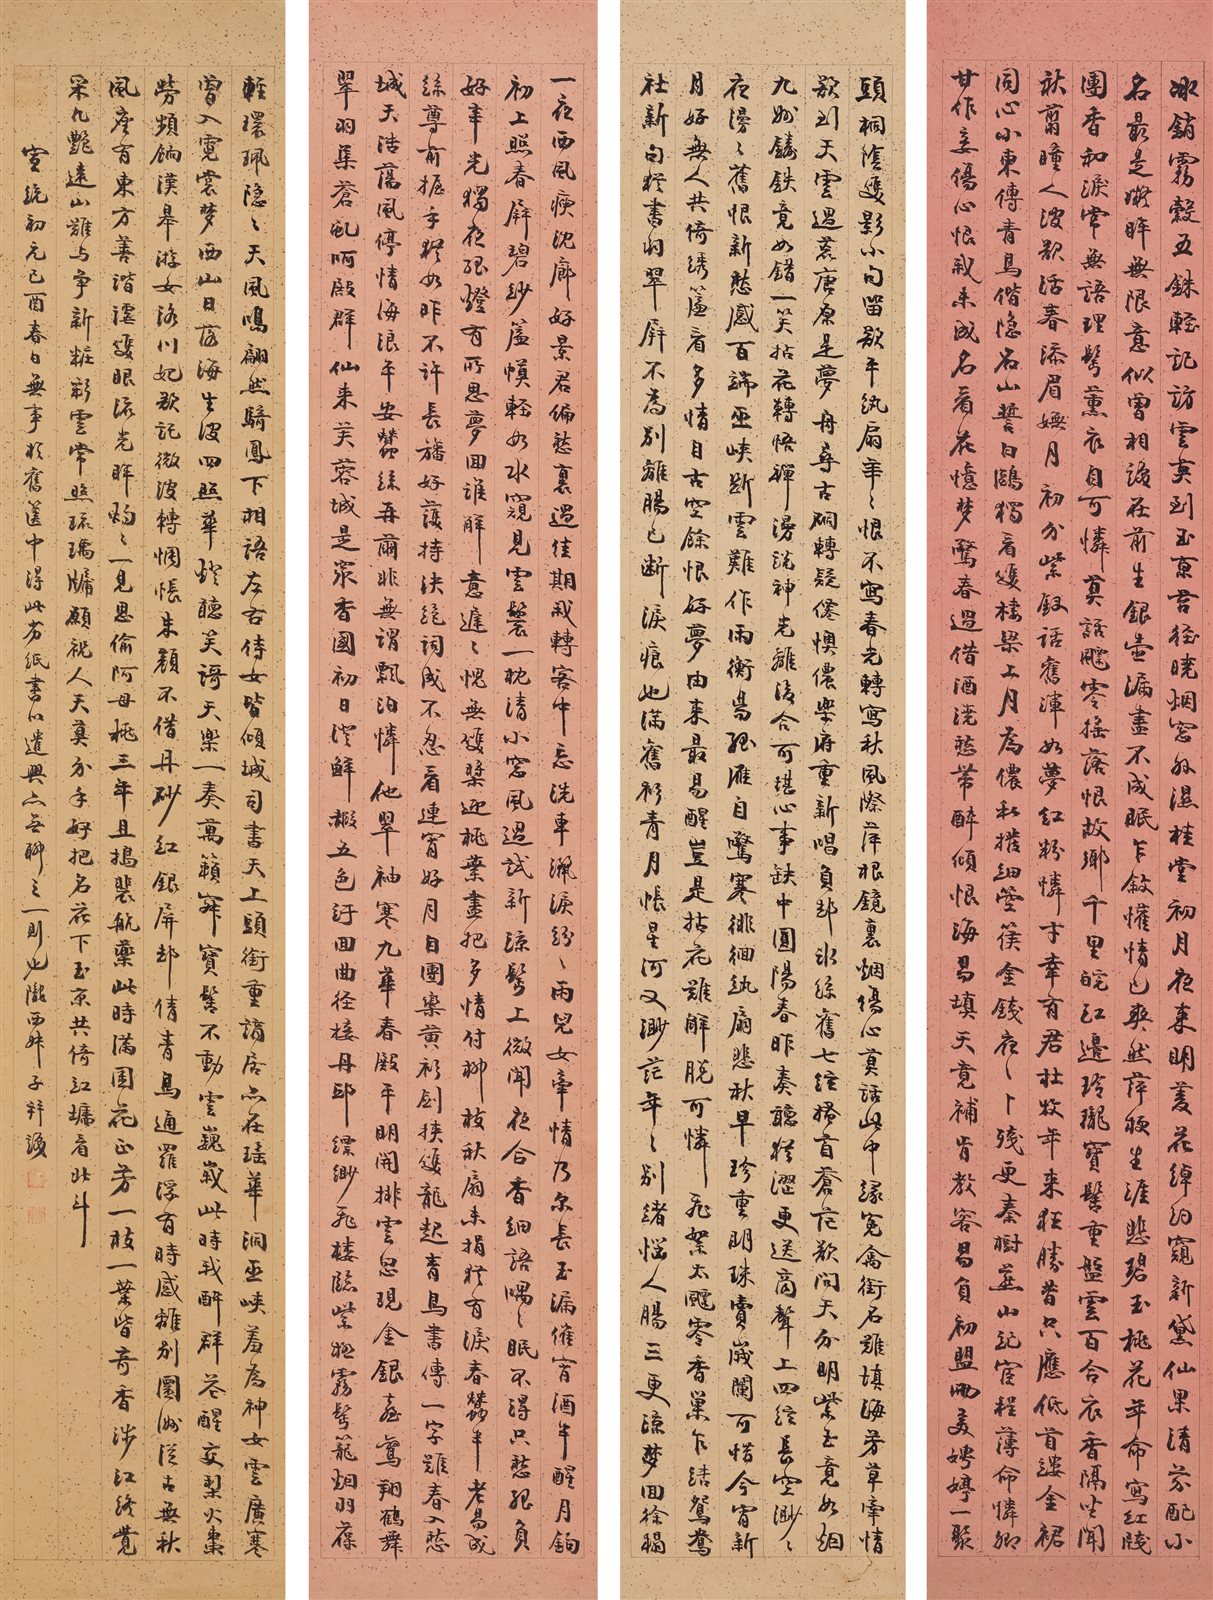 冰銷霧縠五銖輕記訪雲英到玉京君徑曉烟窓外濕桂堂初月夜来明菱花綽約窺新黛仙果清芬配小
名最是嫵眸無限意似曾相識在前生銀壺漏盡不成眠乍敘懽情已爽然萍梗生涯悲碧玉桃花年命寫紅牋
團香和淚常無語理鬢薰衣自可憐莫話飄零搖落恨故鄉千里皖江邊玲瓏寶髻重盤雲百合衣香隔坐聞
秋翦瞳人波欲活春添眉嫵月初分紫釵話舊渾如夢紅粉憐才幸有君杜牧年来狂勝昔只應低首縷金裙
同心小柬傳青鳥偕隱名山誓白鷗獨看雙棲梁上月為儂私撥細箜篌金錢夜夜卜殘更秦樹燕山記宦程薄命憐卿
甘作妾傷心恨我未成名看花憶夢驚春過借酒澆愁帶醉傾恨海易填天竟補肯教容易負初盟西美娉婷一聚
頭桐陰雙影小句留歌年紈扇年年恨不寫春光轉寫秋風際萍根鏡裏烟傷心莫話此中緣冤禽銜石難填海芳草牽情
欲到天雲過荒唐原是夢舟尋古硐轉疑僊懊儂樂府重新唱負却冰絲舊七絃搔首蒼茫欲問天分明紫玉竟如烟
九州鑄鉄竟如錯一笑拈花轉悟禪漫説神光離後合可堪心事缺中圓陽春昨奏聽猶澀更送商聲上四絃長空渺渺
夜漫漫舊恨新愁感百端巫峽斷雲難作雨衡陽孤雁自驚寒徘徊紈扇悲秋早珍重明珠賣歲闌可惜今宵新
月好無人共倚綉簾看多情自古空餘恨好夢由来最易醒豈是拈花難解脱可憐飛絮太飄零香巢乍結鴛鴦
社新句猶書翡翠屏不為别離腸已断淚痕也滿舊衫青月悵星河又渺茫年年别緒惱人腸三更涼夢回徐榻
一夜西風瘦沈廊好景君偏愁裏過佳期我轉客中忘洗車灑淚紛紛雨兒女牽情乃尓長玉漏催宵酒半醒月鉤
初上照春屏碧紗簾幙輕如水窺見雲鬟一枕清小窓風過試新涼髩上微聞夜合香細語喁喁眠不得只愁孤負
好年光獨夜孤燈有所思夢回誰解意遲遲愧無雙槳迎桃葉盡把多情付柳枝秋扇未捐猶有淚春蠶半老易成
絲尊前握手猶如昨不許長旛好護持決絶詞成不忍看連宵好月自團欒黄衫劍挾雙龍起青鳥書傳一字難春入愁
城天浩蕩風停情海浪平安鬢絲再蘭非無謂飄泊憐他翠袖寒九華春殿平明開排雲忽現金銀臺鸞翔鶴舞
翠羽集蒼虬呵殿群仙来芙蓉城是衆香國初日澄鮮緞五色迂回曲徑接丹邱縹緲飛樓臨紫極霧髩籠烟羽葆
輕環珮隐隐天風鳴翩然騎鳳下相語左右侍女皆傾城司書天上頭銜重謫居亦在瑶華洞巫峽羞為神女雲廣寒
曾入霓裳夢西山日落海生波四照華燈聽笑語天樂一奏萬籟寂寶髻不動雲巍峩此時我醉群花醒交梨火棗
勞頻餉漢皋游女洛川妃欲託微波轉惆悵朱顔不借丹砂紅銀屏却倩青鳥通羅浮有時感離别圜洲從古無秋
風座有東方善諧謔雙眼流光眸灼灼一見思偷阿母桃三年且擣裴航藥此時滿園花正芳一枝一葉皆奇香涉江終覺
采凡艷遠山難与争新粧彩雲常照琉璃牖願祝人天莫分手好把名花下玉京共倚紅墻看北斗
宣統初元己酉春日無事於舊篋中得此芳紙書以遣興亦無聊之一則也隴西妹子